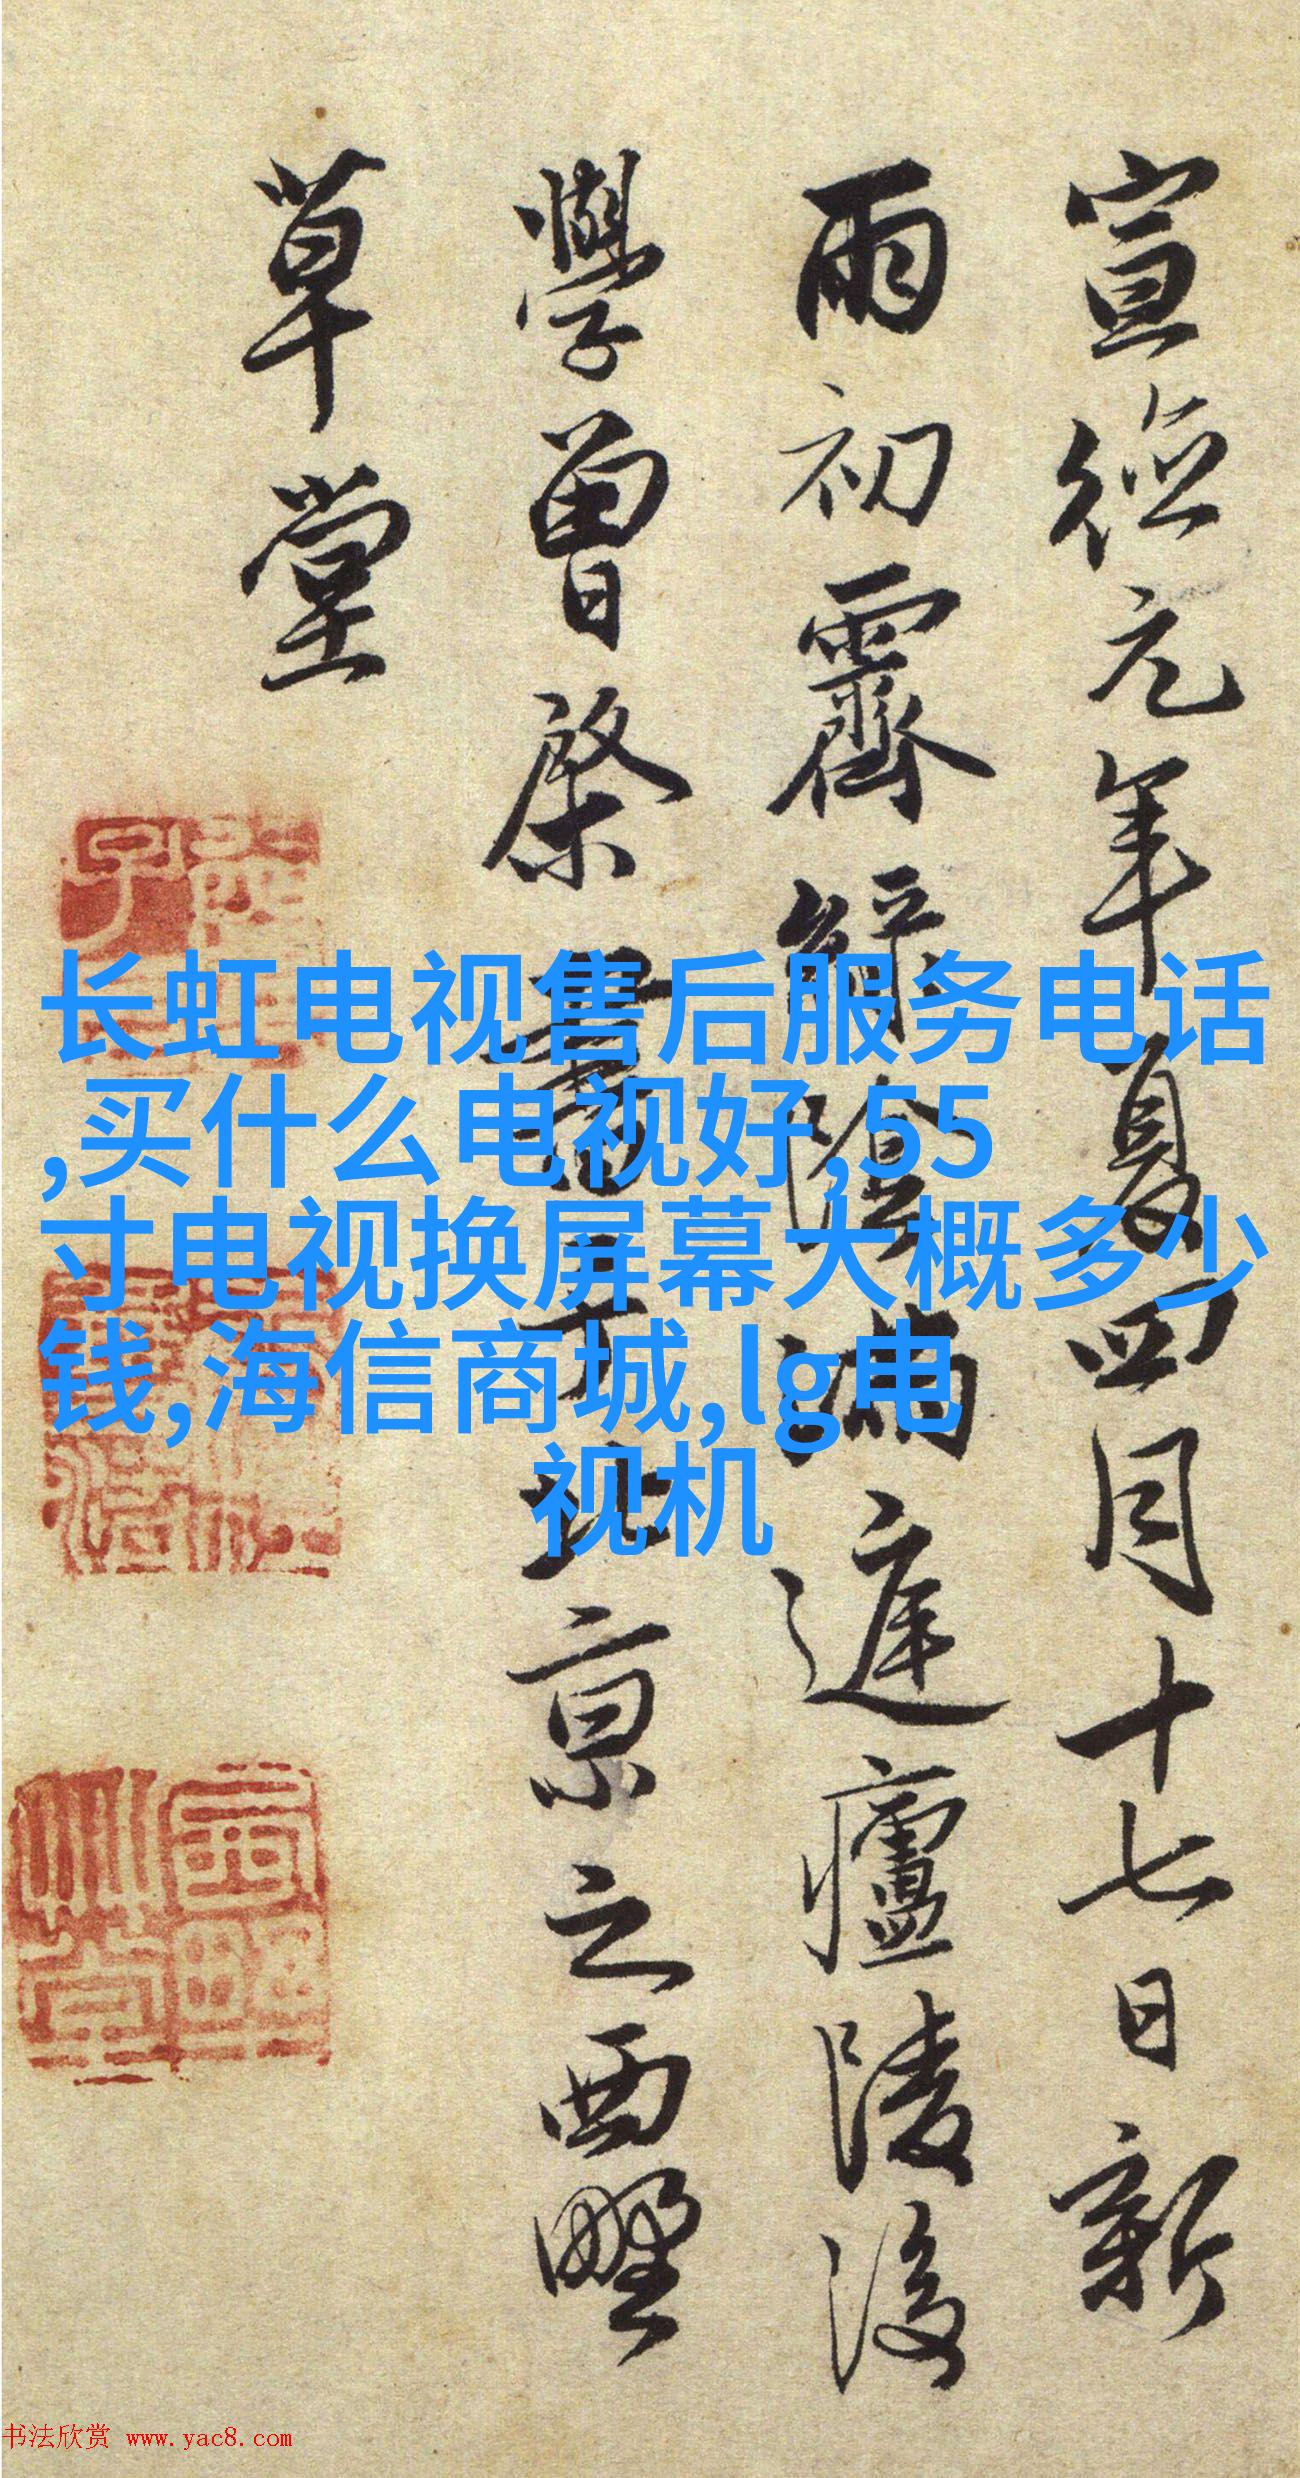 宣德元年夏四月十七日新
雨初霽解陰滿遅廬陵後
學曾棨書于北京之西墅
草堂
长虹电视售后服务电话
,买什么电视好,55
寸电视换屏幕大概多少
钱,海信商城,lg电
视机
书法欣赏 www.yac8.com